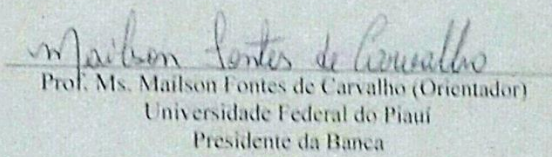 Mailson Fontes de Carvalho
Prof. Ms. Mailson Fontes de Carvalho (Orientador)
Universidade Federal do Piauí
Presidente da Banca